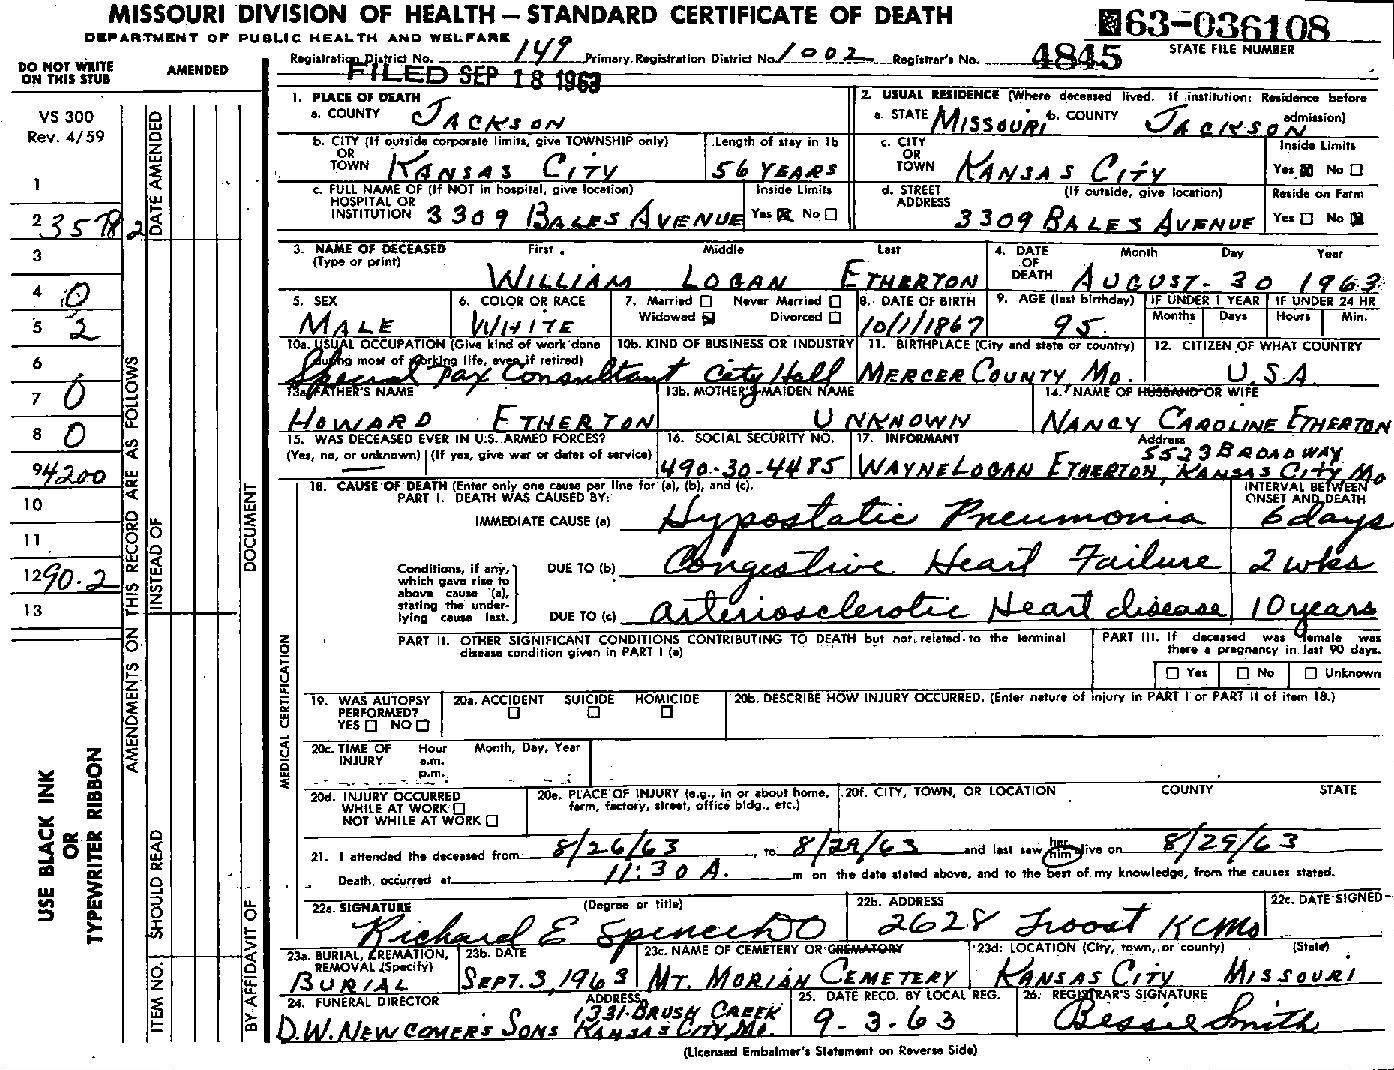 MISSOURI DIVISION OF HEALTH — STANDARD CERTIFICATE OF DEATH
DEPARTMENT OF PUBLIC HEALTH AND WELFARE
63-036108
STATE FILE NUMBER
Registration District No. 149 Primary Registration District No. 1002 Registrar's No. 4845
FILED SEP 18 1963
DO NOT WRITE ON THIS STUB
AMENDED
VS 300
Rev. 4/59
1
2
3
4 0
5 2
6
7 0
8 0
9 4200
10
11
12 90.2
13
USE BLACK INK
OR
TYPEWRITER RIBBON
AMENDMENTS ON THIS RECORD ARE AS FOLLOWS
DATE AMENDED
INSTEAD OF
SHOULD READ
ITEM NO.
DOCUMENT
BY AFFIDAVIT OF
MEDICAL CERTIFICATION
1. PLACE OF DEATH
a. COUNTY JACKSON
2. USUAL RESIDENCE (Where deceased lived. If institution: Residence before admission)
a. STATE MISSOURI b. COUNTY JACKSON
b. CITY (If outside corporate limits, give TOWNSHIP only) OR TOWN KANSAS CITY
Length of stay in 1b 56 YEARS
c. CITY OR TOWN KANSAS CITY
Inside Limits Yes No
c. FULL NAME OF (If NOT in hospital, give location) HOSPITAL OR INSTITUTION 3309 BALES AVENUE
Inside Limits Yes No
d. STREET ADDRESS (If outside, give location) 3309 BALES AVENUE
Reside on Farm Yes No
3. NAME OF DECEASED (Type or print) First Middle Last
WILLIAM LOGAN ETHERTON
4. DATE OF DEATH Month Day Year
AUGUST - 30 1963
5. SEX MALE
6. COLOR OR RACE WHITE
7. Married Never Married Widowed Divorced
8. DATE OF BIRTH 10/1/1867
9. AGE (last birthday) 95
IF UNDER 1 YEAR Months Days
IF UNDER 24 HR Hours Min.
10a. USUAL OCCUPATION (Give kind of work done during most of working life, even if retired) Special Tax Consultant
10b. KIND OF BUSINESS OR INDUSTRY City Hall
11. BIRTHPLACE (City and state or country) MERCER COUNTY MO.
12. CITIZEN OF WHAT COUNTRY U.S.A.
13a. FATHER'S NAME HOWARD ETHERTON
13b. MOTHER'S MAIDEN NAME UNKNOWN
14. NAME OF HUSBAND OR WIFE NANCY CAROLINE ETHERTON
15. WAS DECEASED EVER IN U.S. ARMED FORCES? (Yes, no, or unknown) (If yes, give war or dates of service)
16. SOCIAL SECURITY NO. 490-30-4485
17. INFORMANT Address
WAYNE LOGAN ETHERTON, 5523 BROADWAY KANSAS CITY, MO
18. CAUSE OF DEATH (Enter only one cause per line for (a), (b), and (c).
PART I. DEATH WAS CAUSED BY:
INTERVAL BETWEEN ONSET AND DEATH
IMMEDIATE CAUSE (a) Hypostatic Pneumonia 6 days
Conditions, if any, which gave rise to above cause (a), stating the underlying cause last.
DUE TO (b) Congestive Heart Failure 2 wks
DUE TO (c) arteriosclerotic Heart disease 10 years
PART II. OTHER SIGNIFICANT CONDITIONS CONTRIBUTING TO DEATH but not related to the terminal disease condition given in PART I (a)
PART III. If deceased was female was there a pregnancy in last 90 days.
Yes No Unknown
19. WAS AUTOPSY PERFORMED? YES NO
20a. ACCIDENT SUICIDE HOMICIDE
20b. DESCRIBE HOW INJURY OCCURRED. (Enter nature of injury in PART I or PART II of item 18.)
20c. TIME OF INJURY Hour a.m. p.m. Month, Day, Year
20d. INJURY OCCURRED WHILE AT WORK NOT WHILE AT WORK
20e. PLACE OF INJURY (e.g., in or about home, farm, factory, street, office bldg., etc.)
20f. CITY, TOWN, OR LOCATION COUNTY STATE
21. I attended the deceased from 8/26/63, to 8/29/63 and last saw her him alive on 8/29/63
Death occurred at 11:30 A. m on the date stated above, and to the best of my knowledge, from the causes stated.
22a. SIGNATURE (Degree or title) Richard E Spencer DO
22b. ADDRESS 2628 Troost KCMo
22c. DATE SIGNED
23a. BURIAL, CREMATION, REMOVAL (Specify) BURIAL
23b. DATE SEPT. 3, 1963
23c. NAME OF CEMETERY OR CREMATORY MT. MORIAH CEMETERY
23d. LOCATION (City, town, or county) (State) KANSAS CITY MISSOURI
24. FUNERAL DIRECTOR ADDRESS
D.W. NEWCOMERS SONS 1331 BRUSH CREEK KANSAS CITY MO.
25. DATE RECD. BY LOCAL REG. 9-3-63
26. REGISTRAR'S SIGNATURE Bessie Smith
(Licensed Embalmer's Statement on Reverse Side)